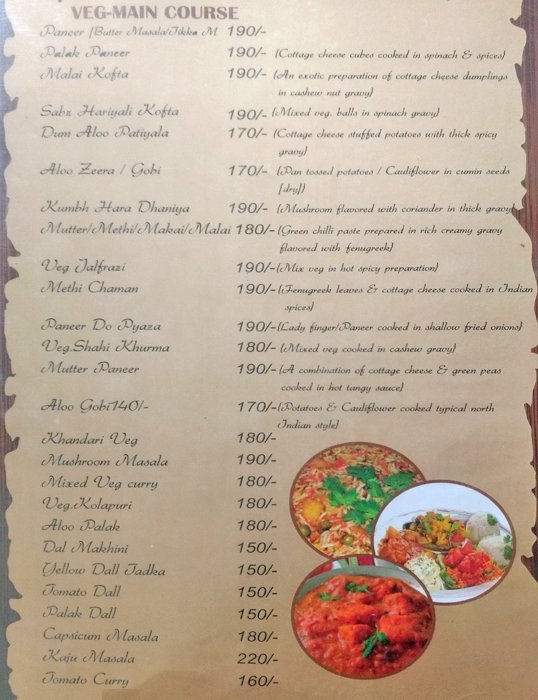 VEG-MAIN COURSE
Paneer [Butter Masala/Tikka M 190/-
Palak Paneer 190/- (Cottage cheese cubes cooked in spinach & spices)
Malai Kofta 190/- (An exotic preparation of cottage cheese dumplings
in cashew nut gravy)
Sabz Hariyali Kofta 190/- (Mixed veg. balls in spinach gravy)
Dum Aloo Patiyala 170/- (Cottage cheese stuffed potatoes with thick spicy
gravy)
Aloo Zeera / Gobi 170/- (Pan tossed potatoes / Cauliflower in cumin seeds
[dry])
Kumbh Hara Dhaniya 190/- (Mushroom flavored with coriander in thick gravy)
Mutter/Methi/Makai/Malai 180/- (Green chilli paste prepared in rich creamy gravy
flavored with fenugreek)
Veg Jalfrazi 190/- (Mix veg in hot spicy preparation)
Methi Chaman 190/- (Fenugreek leaves & cottage cheese cooked in Indian
spices)
Paneer Do Pyaza 190/- (Lady finger/Paneer cooked in shallow fried onions)
Veg.Shahi Khurma 180/- (Mixed veg cooked in cashew gravy)
Mutter Paneer 190/- (A combination of cottage cheese & green peas
cooked in hot tangy sauce)
Aloo Gobi140/- 170/- (Potatoes & Cauliflower cooked typical north
Indian style)
Khandari Veg 180/-
Mushroom Masala 190/-
Mixed Veg curry 180/-
Veg.Kolapuri 180/-
Aloo Palak 180/-
Dal Makhini 150/-
Yellow Dall Tadka 150/-
Tomato Dall 150/-
Palak Dall 150/-
Capsicum Masala 180/-
Kaju Masala 220/-
Tomato Curry 160/-